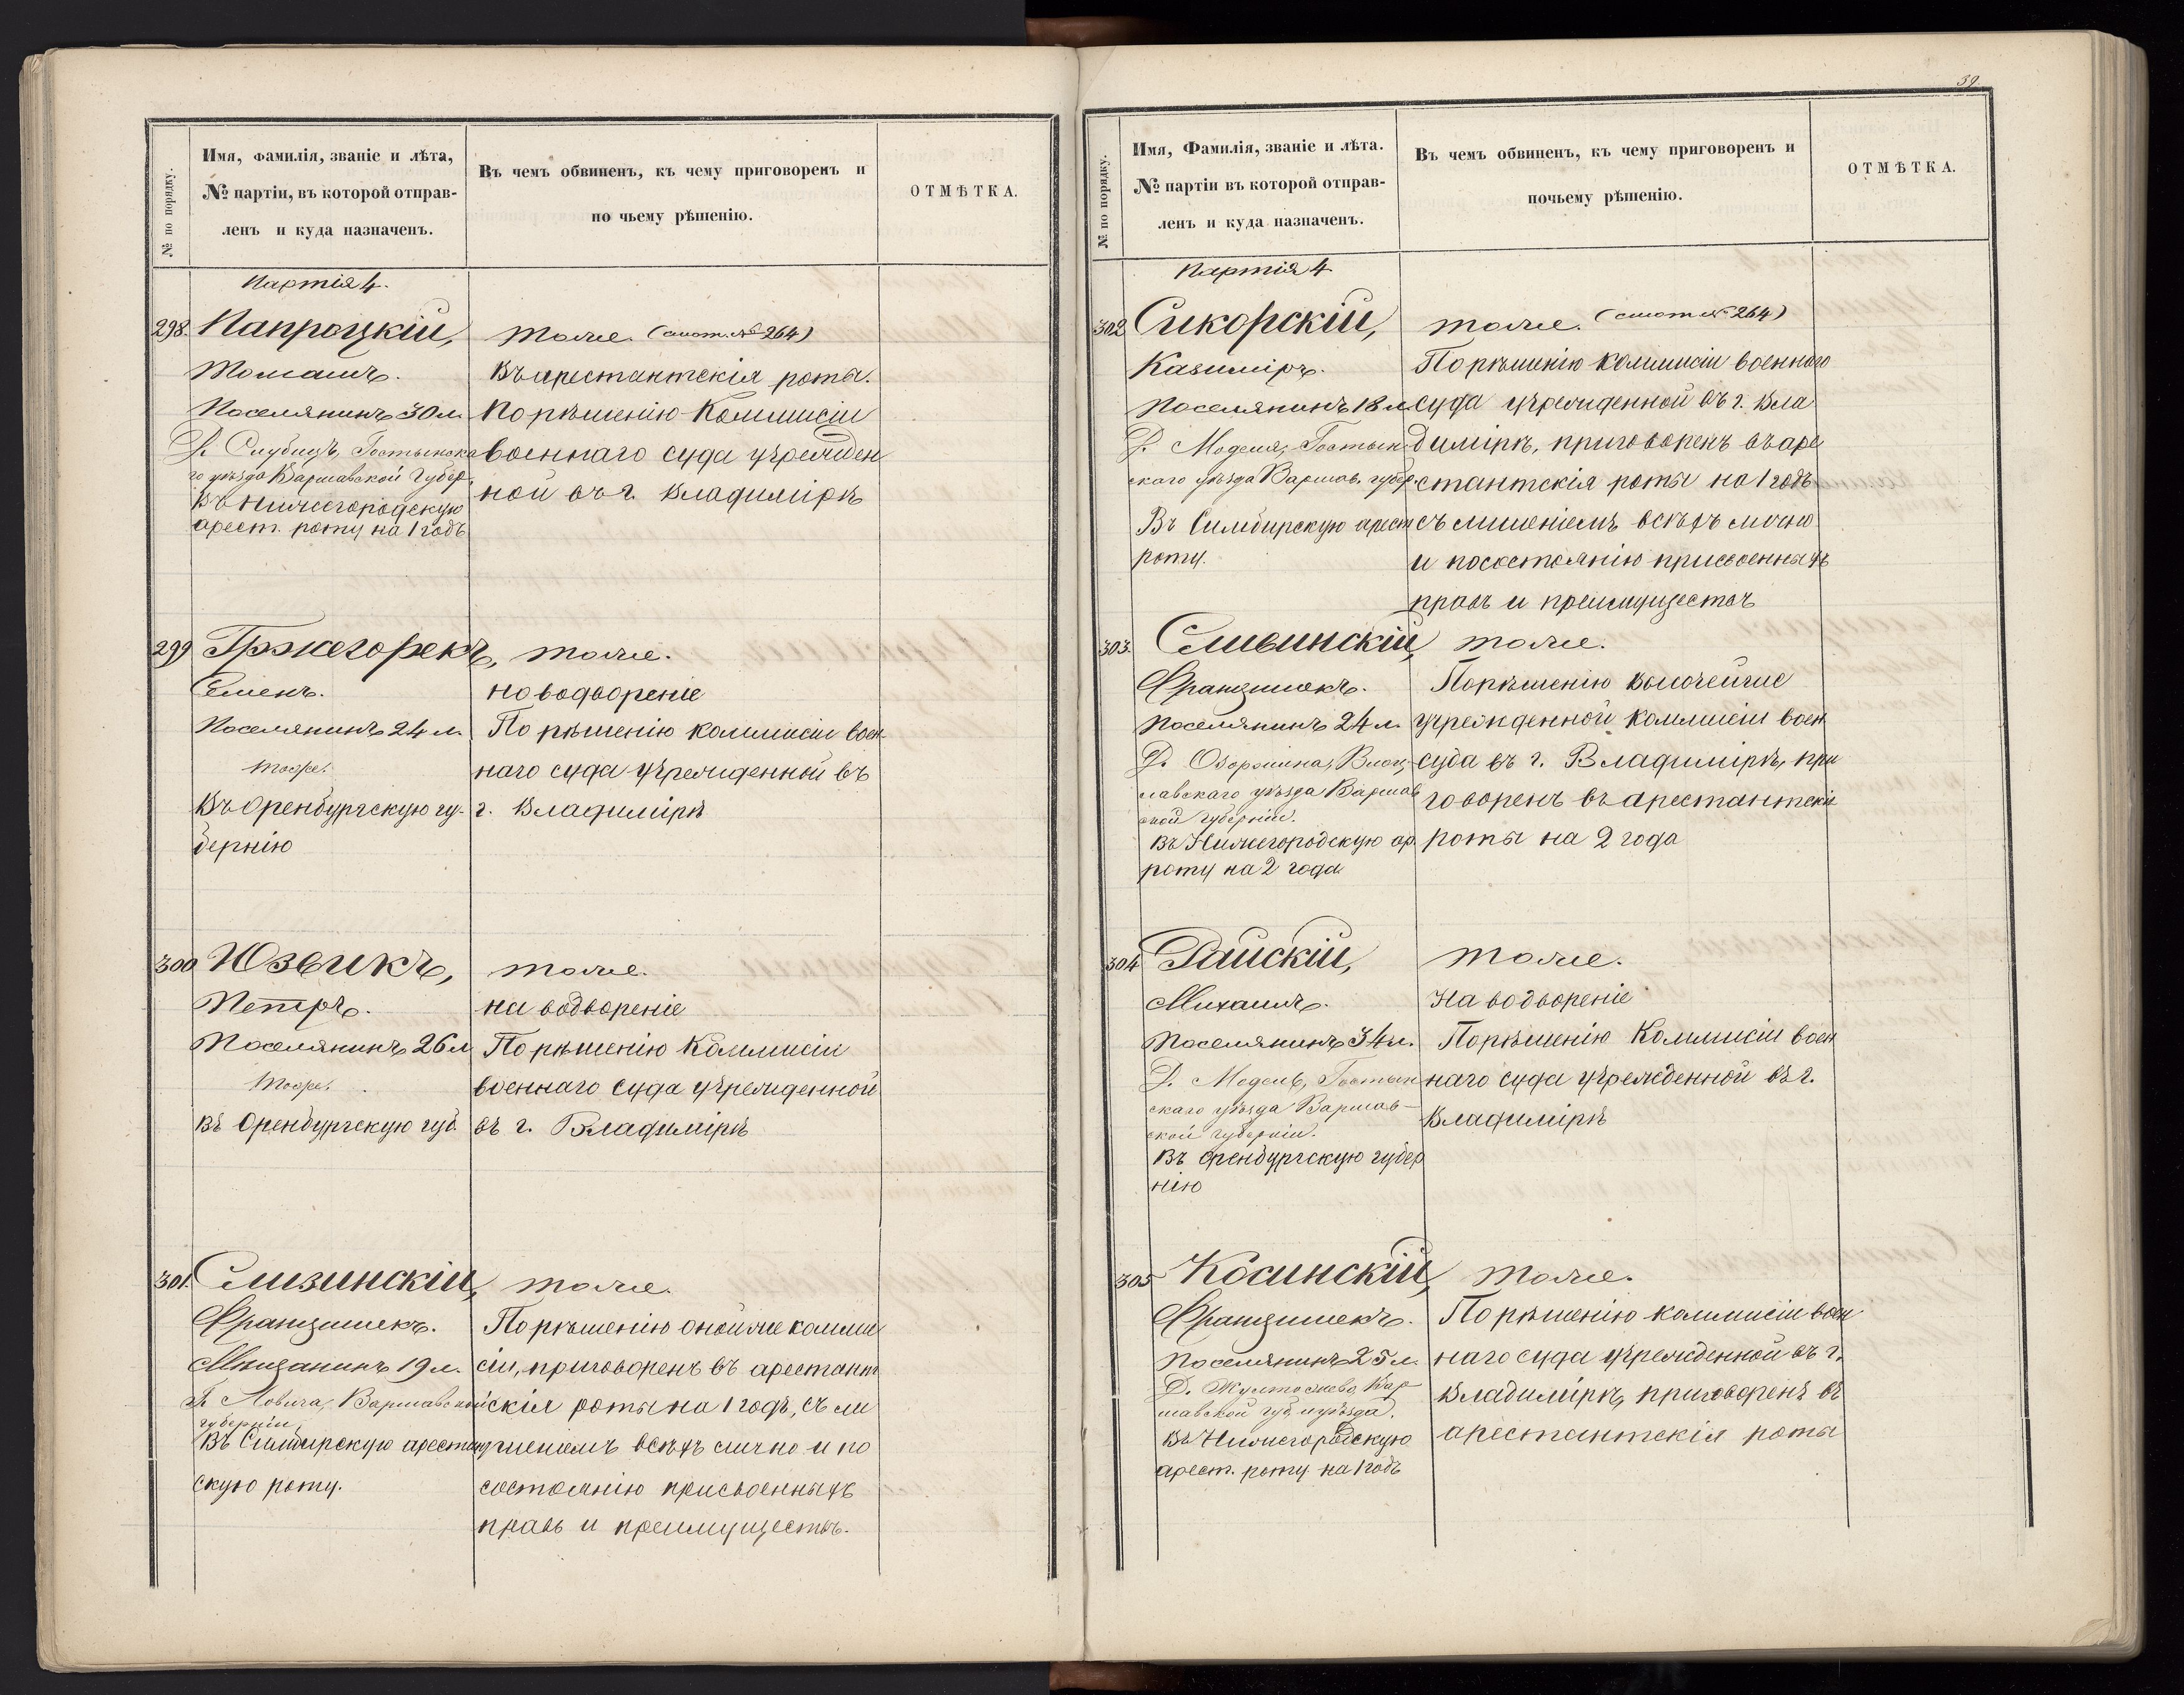 39
№ по порядку.
Имя, Фамилія, званіе и лѣта,
№ партіи, въ которой отправ-
ленъ и куда назначенъ.
Въ чемъ обвиненъ, къ чему приговоренъ и
по чьему рѣшенію.
ОТМѢТКА.
Партія 4.
298. Папроцкій, тоже. (смот. № 264)
Томашъ. Въ арестантскія роты.
Поселянинъ 30 л. По рѣшенію Коммисіи
Д. Слубицъ, Гостынска военнаго суда учрежден
го уѣзда Варшавской Губер. ной въ г. Владимірѣ
Въ Нижегородскую
арест. роту на 1 годъ
299 Гржегорекъ, тоже.
на водвореніе
Поселянинъ 24 л. По рѣшенію коммисіи воен-
тоже. наго суда учрежденной въ
Въ Оренбургскую гу- г. Владимірѣ
бернію
300 Юзвикъ, тоже.
Петръ. на водвореніе
Поселянинъ 26 л По рѣшенію Коммисіи
тоже. военнаго суда учрежденной
Въ Оренбургскую губ. въ г. Владимірѣ
301. Слизинскій, тоже.
Францишекъ. По рѣшенію оной же комми
Мѣщанинъ 19 л. сіи, приговоренъ въ арестант
Г. Ловича, Варшавской скія роты на 1 годъ, съ ли
губерніи.
Въ Симбирскую арестант шеніемъ всѣхъ лично и по
скую роту. состоянію присвоенныхъ
правъ и преимуществъ.
№ по порядку.
Имя, Фамилія, званіе и лѣта.
№ партіи въ которой отправ-
ленъ и куда назначенъ.
Въ чемъ обвиненъ, къ чему приговоренъ и
почьему рѣшенію.
ОТМѢТКА.
Партія 4
302 Сикорскій, тоже. (смот № 264)
Казиміръ. По рѣшенію коммисіи военного
Поселянинъ 18 л суда учрежденной въ г. Вла
Д. Моделя, Гостын диміръ, приговоренъ въ аре
скаго уѣзда Варшав. губер. стантскія роты на 1 годъ
Въ Симбирскую арест съ лишеніемъ всѣхъ лично
роту. и по состоянію присвоенныхъ
правъ и преимуществъ
303. Сливинскій, тоже.
Францишекъ. По рѣшенію
Поселянинъ 24 л. учрежденной коммисіи воен
суда въ г. Владимірѣ, при
лавскаго уѣзда Варшав говоренъ въ арестантскія
ской губерніи.
Въ Нижегородскую ар. роты на 2 года
роту на 2 года
304 Райскій, тоже.
Михаилъ. На водвореніе
Поселянинъ 34 л. По рѣшенію Коммисіи воен
Д. Модель, Гостын наго суда учрежденной въ г.
скаго уѣзда Варшав- Владимірѣ
ской губерніи.
Въ Оренбургскую губер
нію
305 Косинскій, тоже.
Францишекъ. По рѣшенію коммисіи воен
Поселянинъ 25 л. наго суда учрежденной въ г.
Владимірѣ, приговоренъ въ
шавской губ. и уѣзда.
Въ Нижегородскую арестантскія роты
арест. роту на 1 годъ